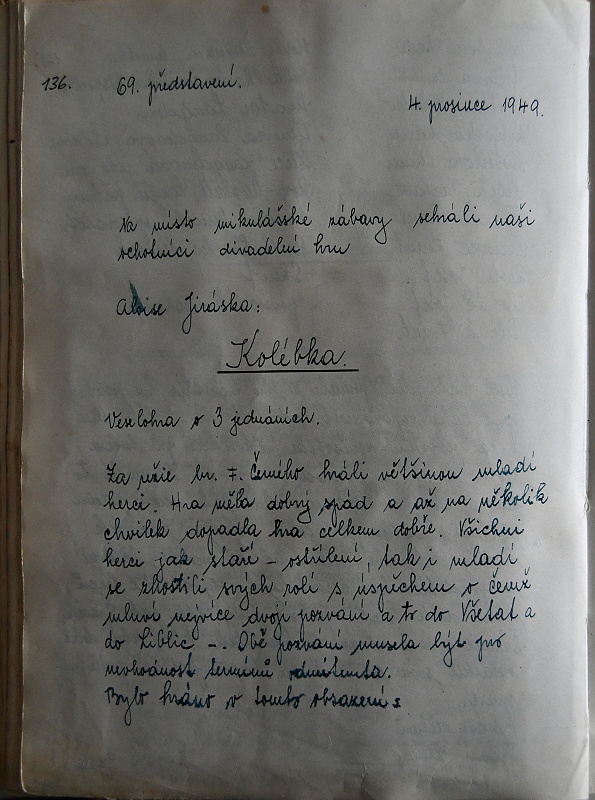 136. 69. představení.
4. prosince 1949.
Na místo mikulášské zábavy sehráli naši
ochotníci divadelní hru
Aloise Jiráska:
Kolébka.
Veselohra o 3 jednáních.
Za režie br. F. Černého hráli většinou mladí
herci. Hra měla dobrý spád a až na několik
chvilek dopadla hra celkem dobře. Všichni
herci jak staří - ostřílení, tak i mladí
se zhostili svých rolí s úspěchem o čemž
mluví nejvíce dvojí pozvání a to do Všetat a
do Liblic -. Obě pozvání musela být pro
nevhodnost termínů odmítnuta.
Bylo hráno v tomto obsazení: